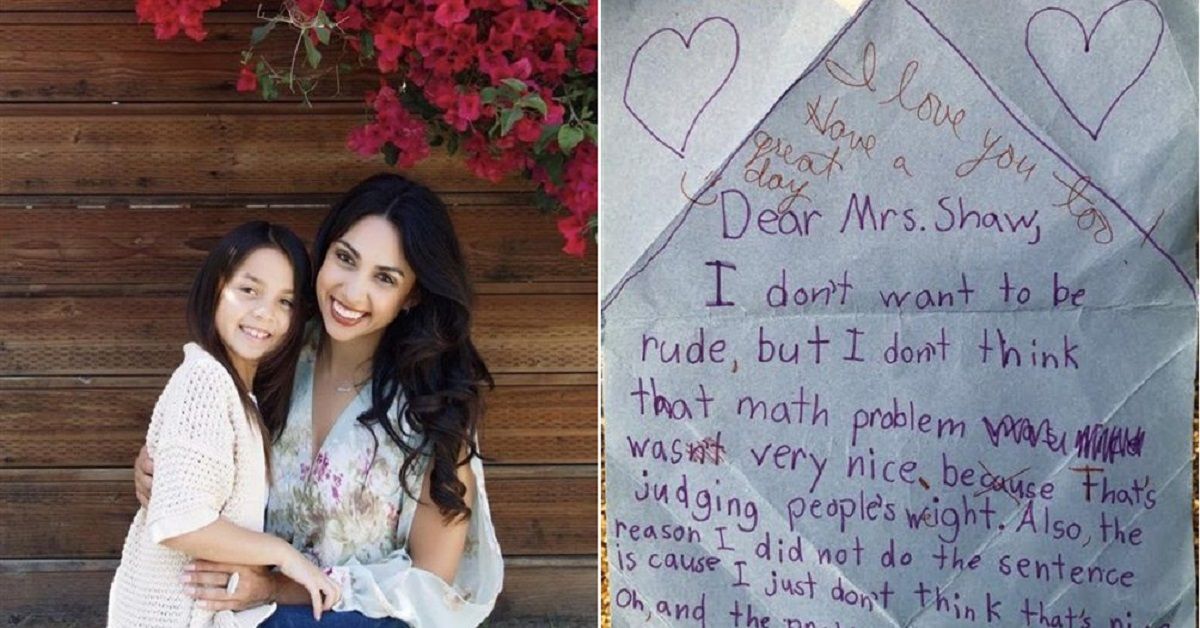 I love you too!
(Have a
great
day
Dear Mrs. Shaw,
I don't want to be
rude, but I don't think
that math problem
was very nice. because That's
judging people's weight. Also, the
reason I did not do the sentence
is cause I just don't think that's
Oh, and the